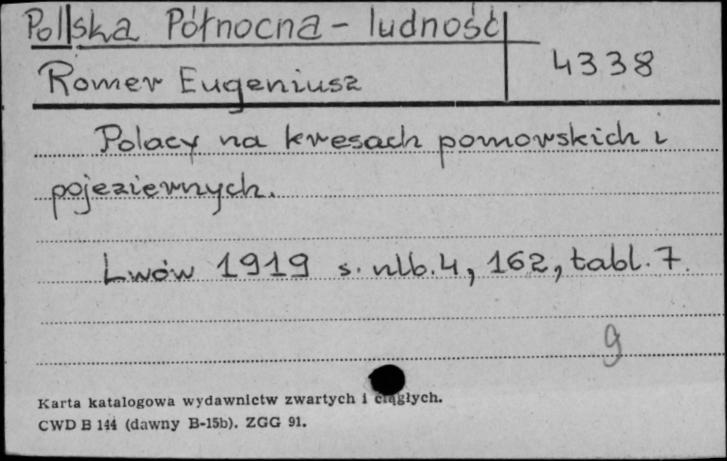 Polska Północna - ludność
Romer Eugeniusz
4338
Polacy na kresach pomorskich i
pojeziernych.
Lwów 1919 s. nlb. 4, 162, tabl. 7.
g
Karta katalogowa wydawnictw zwartych i ciągłych.
CWD B 144 (dawny B-15b). ZGG 91.